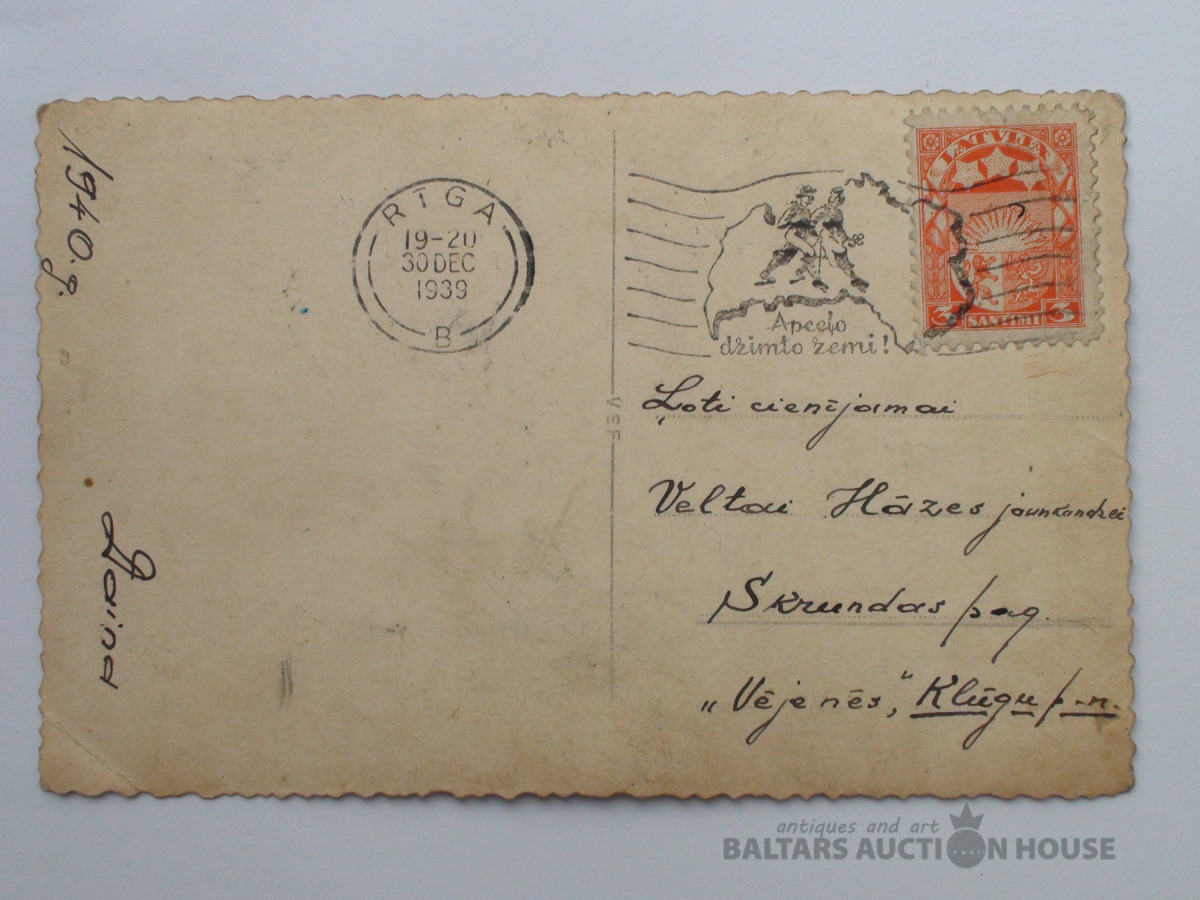 1940.g.
Laina
RĪGA
19-20
30 DEC
1939
B
Apceļo
dzimto zemi!
LATVIJA
3 SANTIMI 3
VEF
Ļoti cienījamai
Veltai Hāzes jaunkundzei
Skrundas pag.
„Vējenēs," Klūgu p.n.
antiques and art
BALTARS AUCTION HOUSE